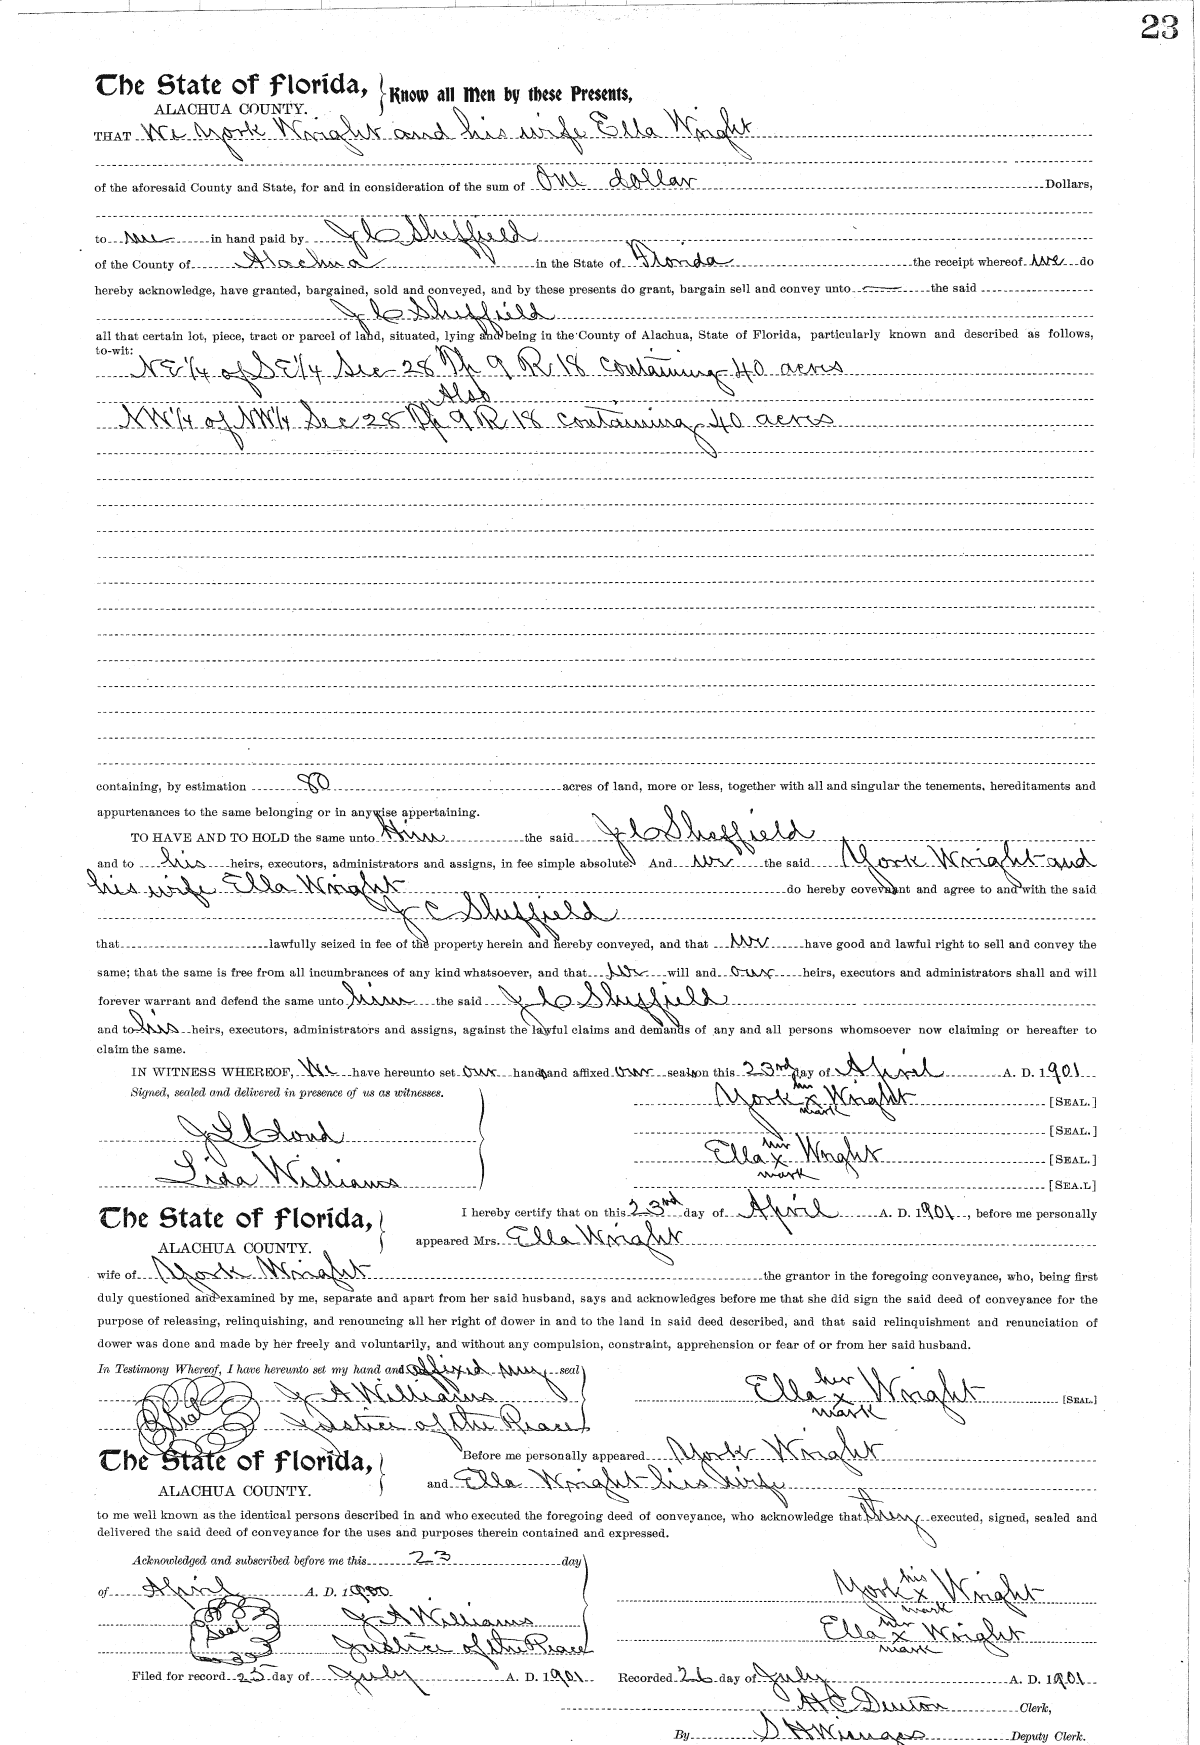 23
The State of Florida, Know all Men by these Presents,
ALACHUA COUNTY.
THAT We York Wright and his wife Ella Wright
of the aforesaid County and State, for and in consideration of the sum of One dollar Dollars,
to me in hand paid by J C Sheffield
of the County of Alachua in the State of Florida the receipt whereof we do
hereby acknowledge, have granted, bargained, sold and conveyed, and by these presents do grant, bargain sell and convey unto the said
J C Sheffield
all that certain lot, piece, tract or parcel of land, situated, lying and being in the County of Alachua, State of Florida, particularly known and described as follows,
to-wit:
NE 1/4 of SE 1/4 Sec 28 Tp 9 R 18 containing 40 acres
Also
NW 1/4 of NW 1/4 Sec 28 Tp 9 R 18 containing 40 acres
containing, by estimation 80 acres of land, more or less, together with all and singular the tenements, hereditaments and
appurtenances to the same belonging or in anywise appertaining.
TO HAVE AND TO HOLD the same unto Him the said J C Sheffield
and to his heirs, executors, administrators and assigns, in fee simple absolute. And we the said York Wright and
his wife Ella Wright do hereby covenant and agree to and with the said
J C Sheffield
that lawfully seized in fee of the property herein and hereby conveyed, and that we have good and lawful right to sell and convey the
same; that the same is free from all incumbrances of any kind whatsoever, and that we will and our heirs, executors and administrators shall and will
forever warrant and defend the same unto him the said J C Sheffield
and to his heirs, executors, administrators and assigns, against the lawful claims and demands of any and all persons whomsoever now claiming or hereafter to
claim the same.
IN WITNESS WHEREOF, We have hereunto set our hands and affixed our seals on this 23rd day of April A. D. 1901
Signed, sealed and delivered in presence of us as witnesses. York his x mark Wright [SEAL.]
J L Cloud [SEAL.]
Ella her x mark Wright [SEAL.]
Lida Williams [SEA.L]
The State of Florida, I hereby certify that on this 23rd day of April A. D. 1901, before me personally
ALACHUA COUNTY. appeared Mrs. Ella Wright
wife of York Wright the grantor in the foregoing conveyance, who, being first
duly questioned and examined by me, separate and apart from her said husband, says and acknowledges before me that she did sign the said deed of conveyance for the
purpose of releasing, relinquishing, and renouncing all her right of dower in and to the land in said deed described, and that said relinquishment and renunciation of
dower was done and made by her freely and voluntarily, and without any compulsion, constraint, apprehension or fear of or from her said husband.
In Testimony Whereof, I have hereunto set my hand and affixed my seal
Seal J A Williams Ella her x mark Wright [SEAL.]
Justice of the Peace
The State of Florida, Before me personally appeared York Wright
ALACHUA COUNTY. and Ella Wright his wife
to me well known as the identical persons described in and who executed the foregoing deed of conveyance, who acknowledge that they executed, signed, sealed and
delivered the said deed of conveyance for the uses and purposes therein contained and expressed.
Acknowledged and subscribed before me this 23 day
of April A. D. 1900 York his x mark Wright
Seal J A Williams Ella her x mark Wright
Justice of the Peace
Filed for record 25 day of July A. D. 1901 Recorded 26 day of July A. D. 1901
H C Denton Clerk,
By S H Wienges Deputy Clerk.